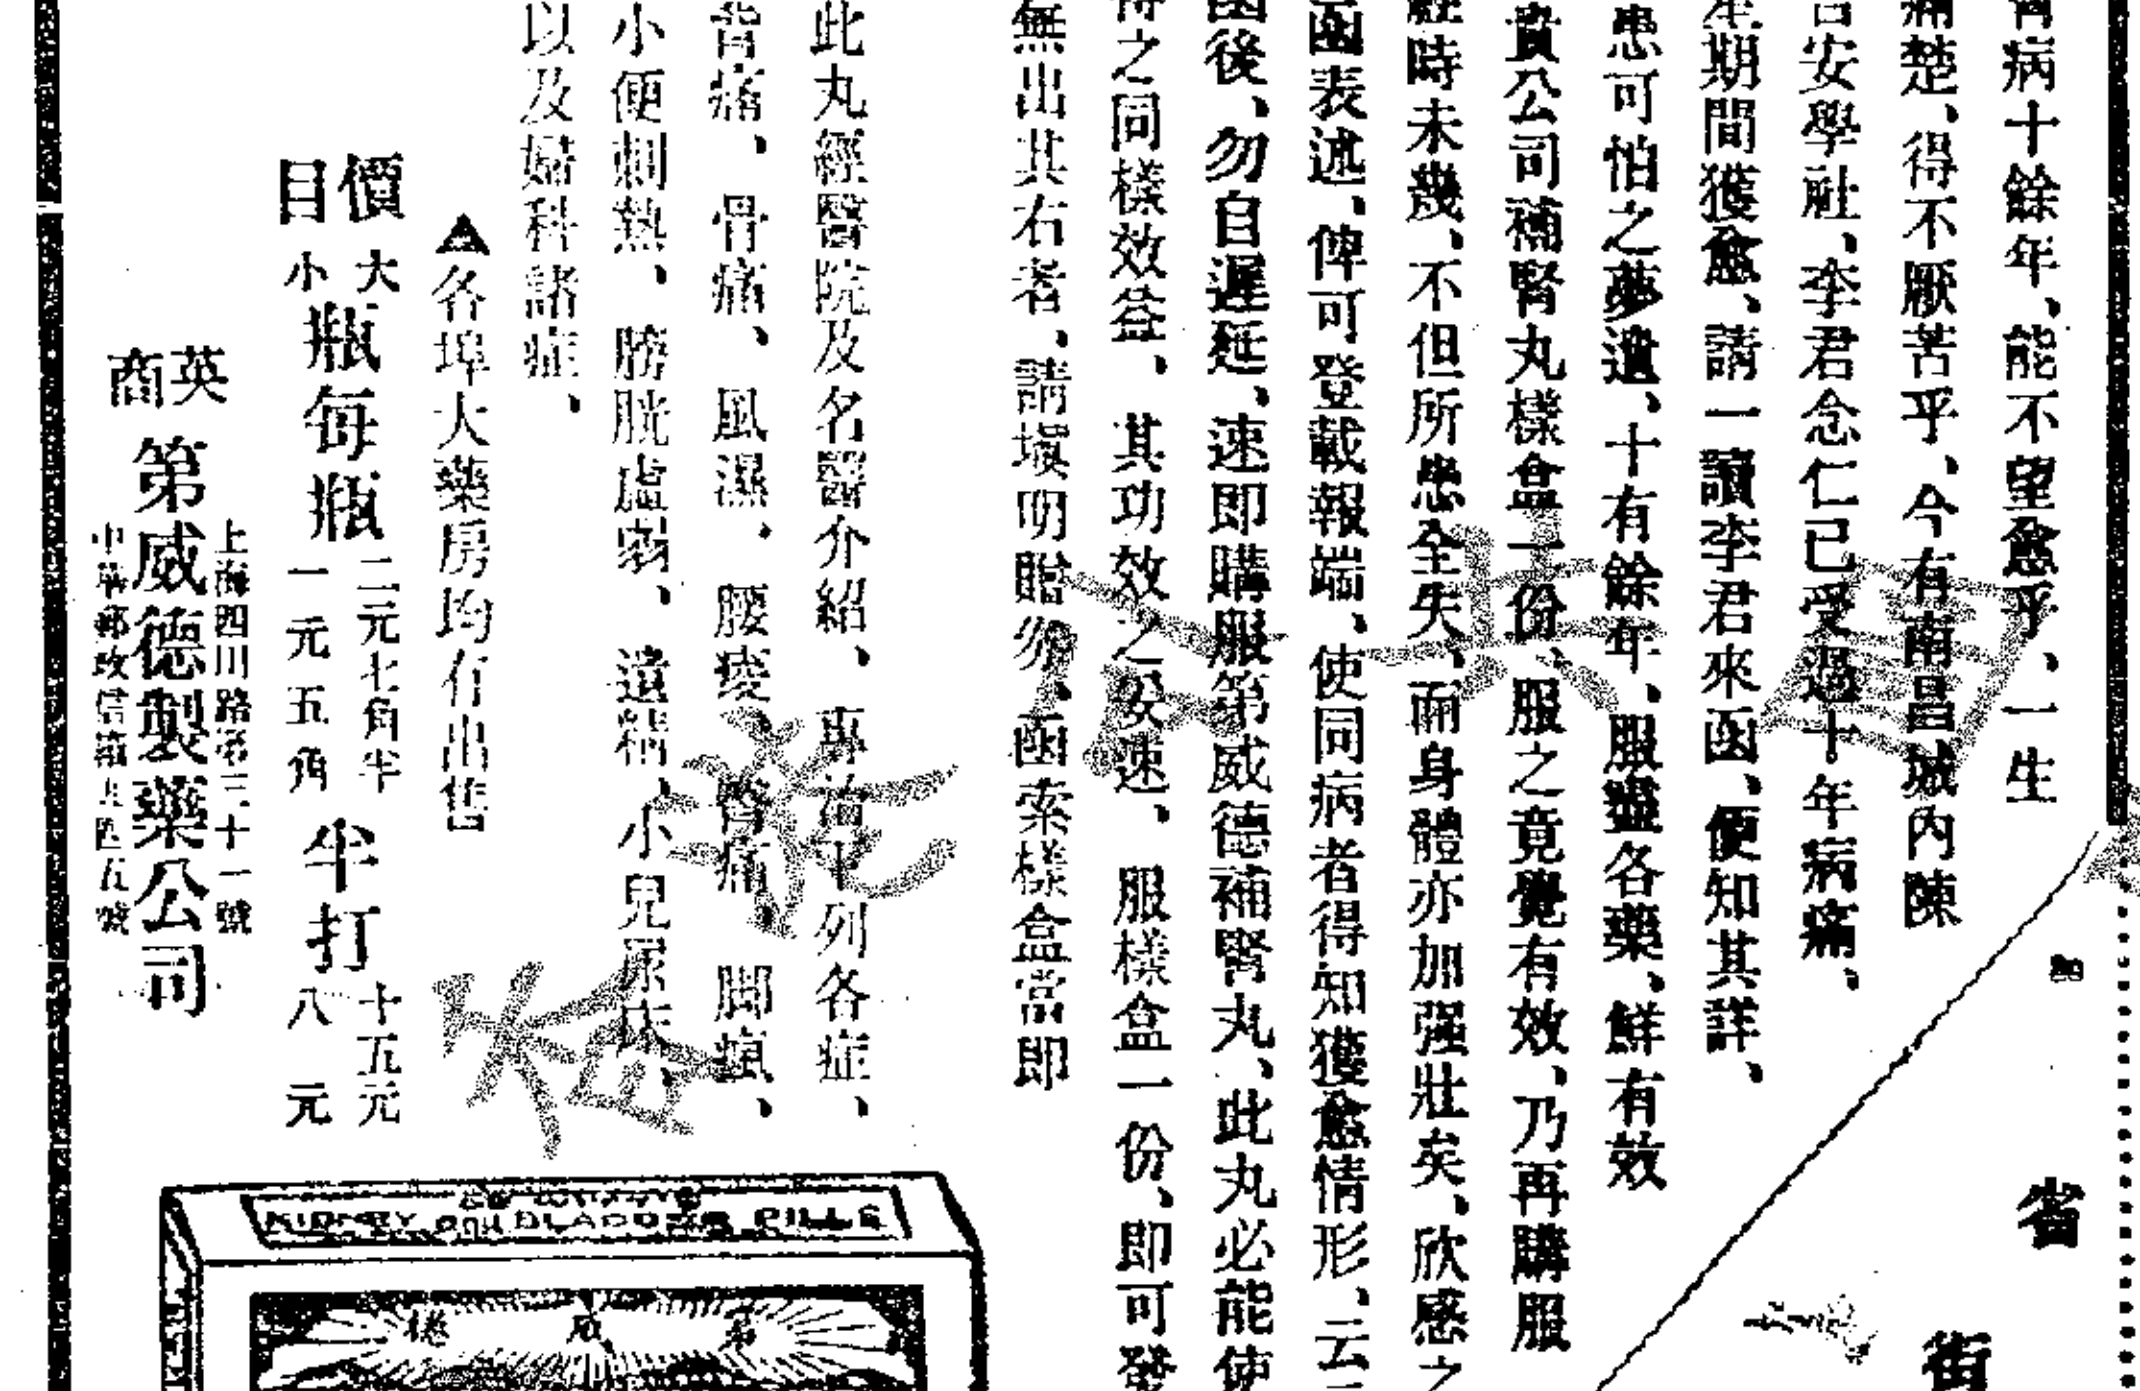 病十餘年、能不望愈乎、一生
痛楚、得不厭苦乎、今有南昌城內陳
安學社、李君念仁已受過十年病痛、
星期間獲愈、請一讀李君來函、便知其詳、
患可怕之夢遺、十有餘年、服盡各藥、鮮有效
貴公司補腎丸樣盒一份、服之竟覺有效、乃再購服
經時未幾、不但所患全失、而身體亦加强壯矣、欣感之
函表述、俾可登載報端、使同病者得知獲愈情形、云云
函後、勿自遲延、速即購服第威德補腎丸、此丸必能使
得之同樣效益、其功效之安速、服樣盒一份、即可發
無出其右者、請塡明贈券、函索樣盒當即
此丸經醫院及名醫介紹、專治下列各症、
背痛、骨痛、風濕、腰痠、腎痛、脚痕、
小便刺熱、膀胱虛弱、遺精、小兒尿床、
以及婦科諸症、
▲各埠大藥房均有出售
價目
大小瓶每瓶
二元七角半
一元五角
半打
十五元
八元
英商
上海四川路第三十一號
第威德製藥公司
中華郵政信箱
KIDNEY AND BLADDER PILLS
第威德
省
街